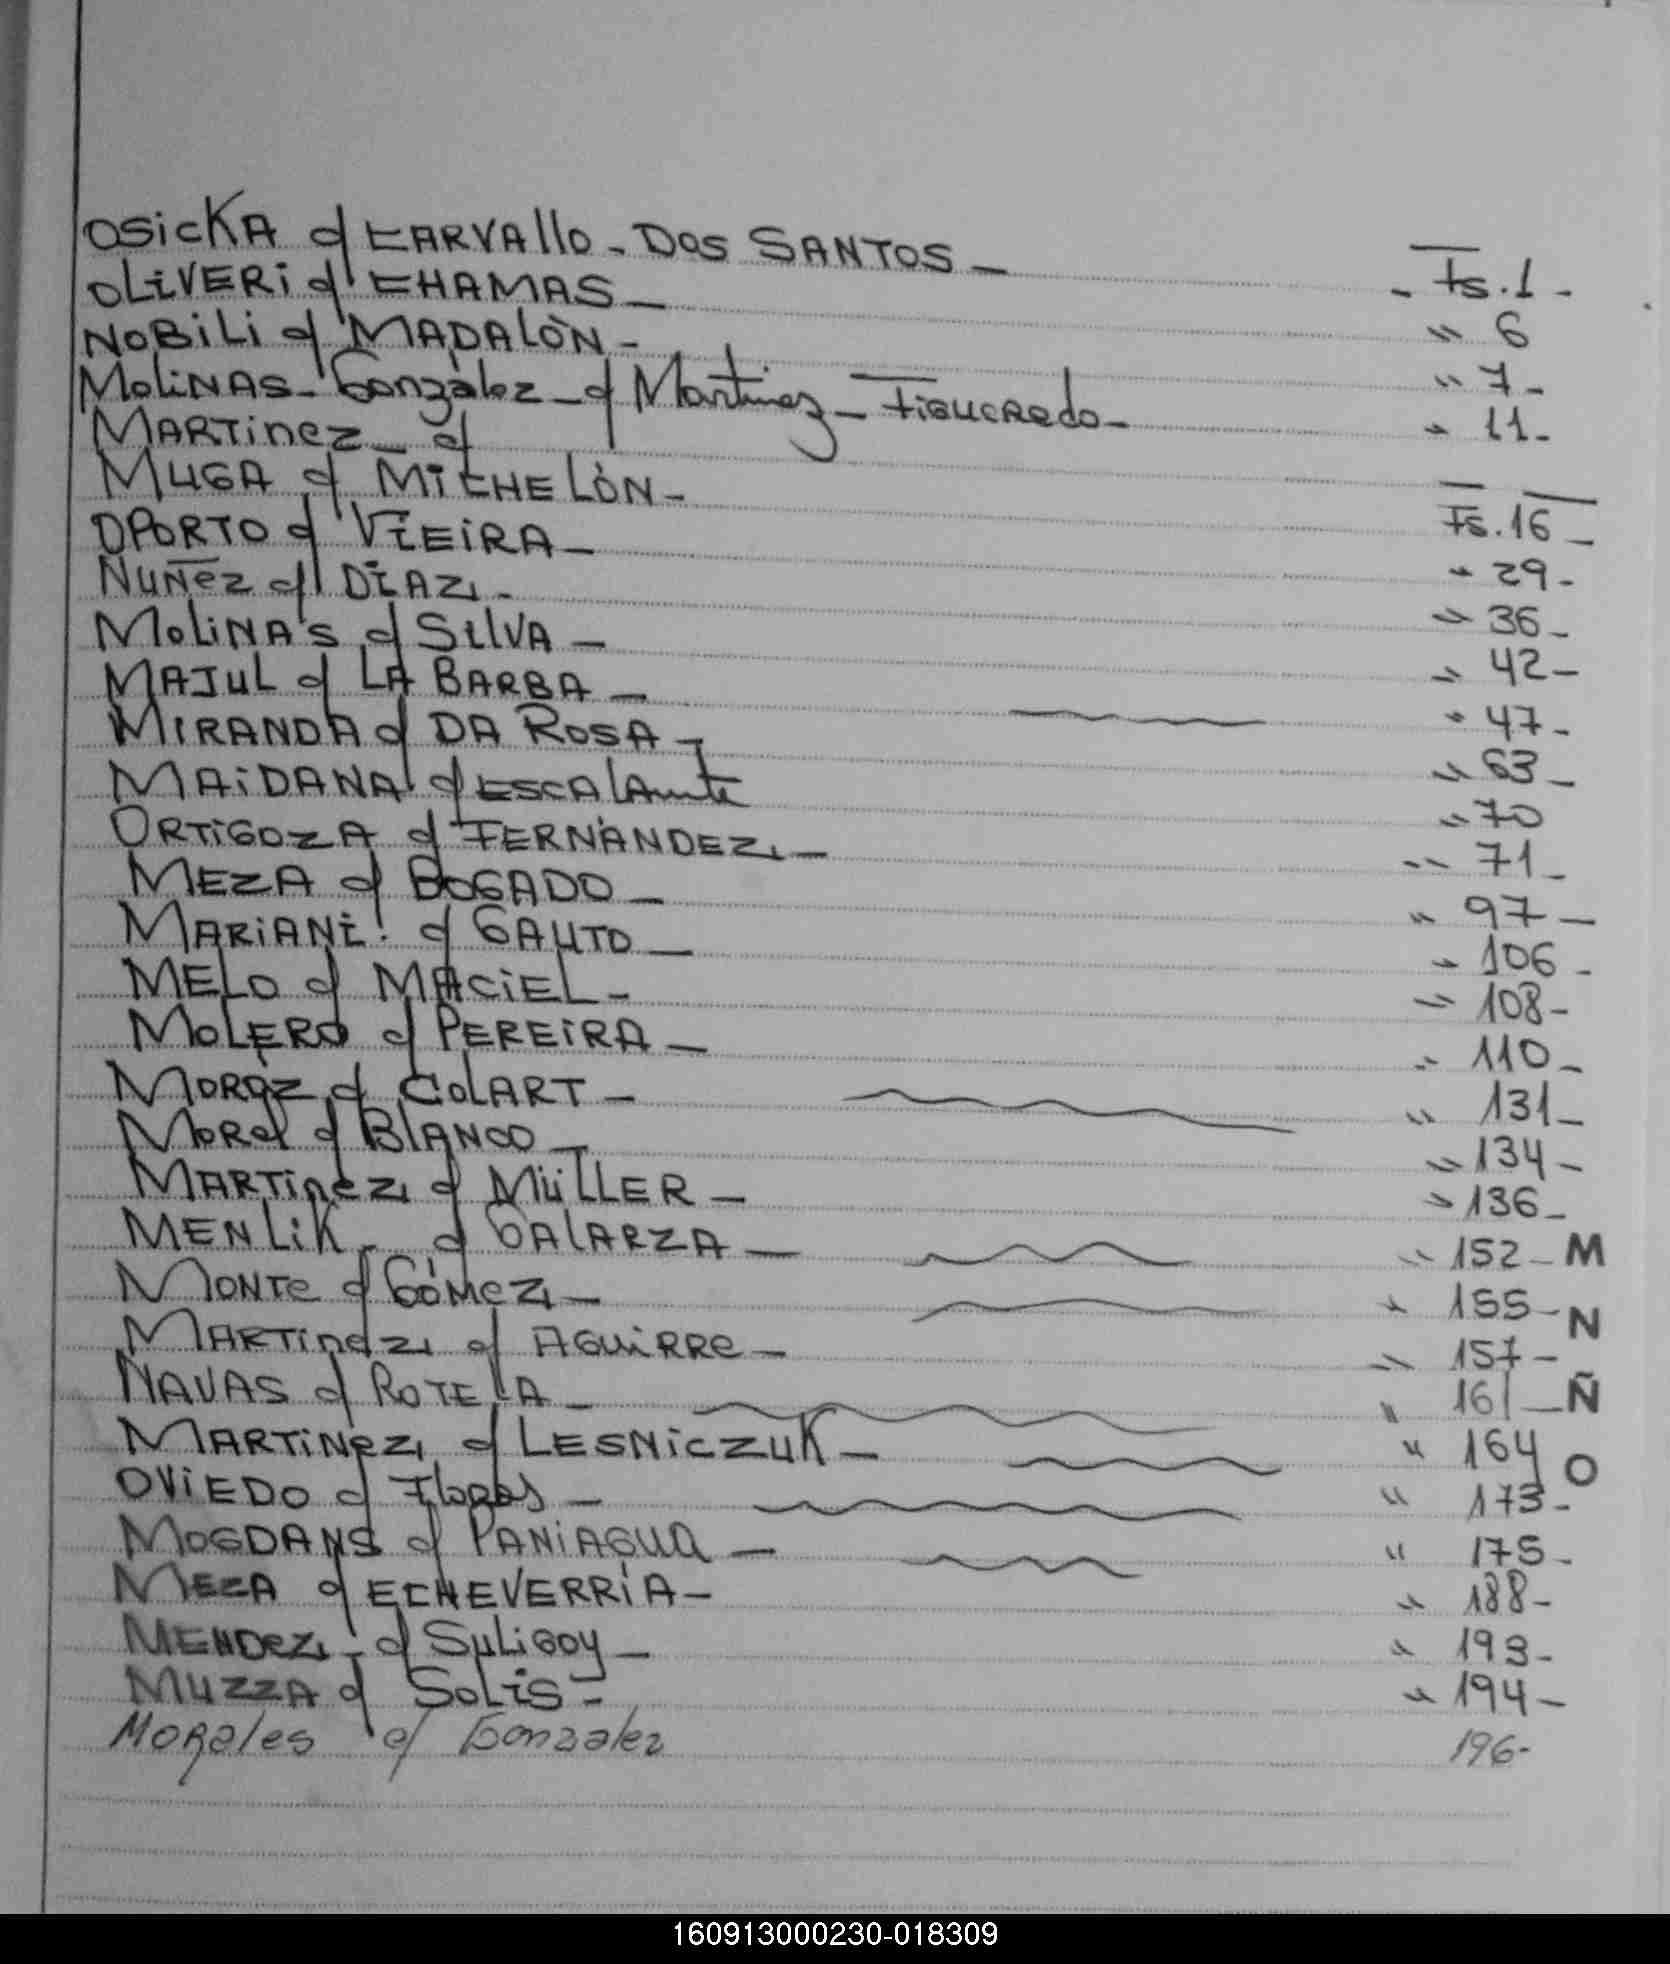 OSICKA c/ CARVALLO - DOS SANTOS - - Fs. 1 -
OLIVERI c/ CHAMAS - " 6
NOBILI c/ MADALÓN - " 7 -
MOLINAS - González - c/ Martinez - FIGUEREDO - " 11 -
MARTINEZ - c/
MUGA c/ MICHELÓN - Fs. 16 -
OPORTO c/ VIEIRA - " 29 -
NUÑEZ c/ DÍAZ - " 36 -
MOLINAS c/ SILVA - " 42 -
MAJUL c/ LA BARBA - " 47 -
MIRANDA c/ DA ROSA - " 63 -
MAIDANA c/ ESCALANTE " 70
ORTIGOZA c/ FERNÁNDEZ - " 71 -
MEZA c/ BOGADO - " 97 -
MARIANI c/ GAUTO - " 106 -
MELO c/ MACIEL - " 108 -
MOLERO c/ PEREIRA - " 110 -
MORAZ c/ COLART - " 131 -
MOREL c/ BLANCO - " 134 -
MARTINEZ c/ MÜLLER - " 136 -
MENLIK - c/ GALARZA - " 152 - M
MONTE c/ GÓMEZ - " 155 - N
MARTINEZ c/ AGUIRRE - " 157 -
NAVAS c/ ROTELA - " 161 - Ñ
MARTINEZ c/ LESNICZUK - " 164 O
OVIEDO c/ Flores - " 173 -
MOGDANS c/ PANIAGUA - " 175 -
MEZA c/ ECHEVERRÍA - " 188 -
MENDEZ - c/ SULIGOY - " 193 -
MUZZA c/ SOLIS - " 194 -
Morales c/ Gonzalez 196 -
160913000230-018309